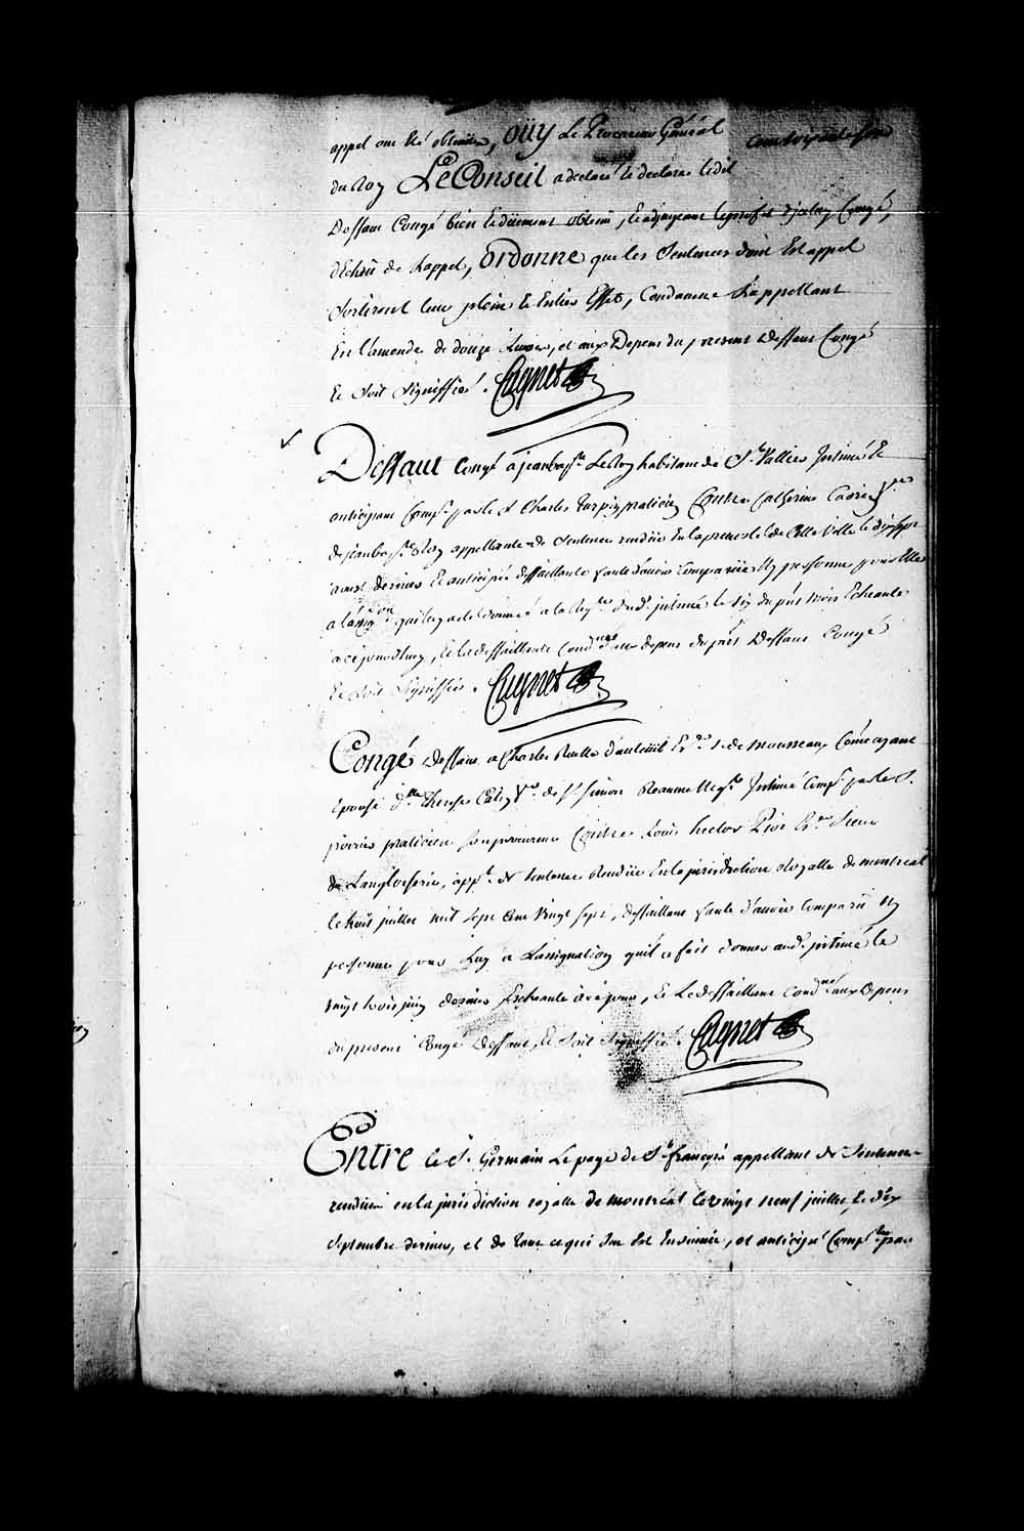 appel ont été obtenües, OÜY Le Procureur Général
du Roy Le Conseil a declaré et declare ledit
Deffaut Congé bien et düement obtenu, et adjugeant le profit d'jceluy Congé,
déchoit de l'appel, ordonne que les Sentences dont Est appel
Sortiront leur plein et Entier Effet, Condamne L'appellant
En l'amende de douze livres, et aux Depens du present deffaut Congé
Et Soit Signiffié. Cugnet
Deffaut Congé a jean bapte. LeRoy habitant de St. Vallier Intimé Et
anticipant Comp. par le S. Charles Turpin praticien Contre Catherine Ve.
de jean bapte. Roy appellante de Sentence rendüe En la prevosté de Cette Ville le
aoust dernier Et anticipée deffaillante faute d'avoir Comparüe Ny personne pour Elle
a l'assig.on qui luy a été donnée a la Reqte. dud. jntimé le Six du pnt mois Echeante
a ce jourdhuy, Et la deffaillante Cond.née aux depens du pnt Deffaut Congé
Et Soit Signiffié. Cugnet
Congé Deffaut a Charles Ruette d'auteuil Er. S. de monceaux Comme ayant
Epousé dlle. Therese Catin Ve. de St. Simon Intimé Comp. par le S.
poirier praticien son procureur Contre Loüis hector Piot Er. Sieur
de Langloiserie, appt. de Sentence Rendüe En la jurisdiction Royalle de montreal
le huit juillet mil Sept Cent Vingt Sept, deffaillant faute d'avoir Comparü Ny
personne pour Luy a Lassignation quil a fait donner aud. jntimé le
vingt trois juin dernier Echeante a ce jour, Et Le deffaillant cond.né aux Depens
du present Congé Deffaut, Et Soit Signiffié. Cugnet
Entre le S. Germain Le page de St. françois appellant de Sentence
rendües en la jurisdiction royalle de montréal le vingt neuf juillet, Et dix
Septembre dernier, et de tout ce qui S'en Est Ensuivie, et anticipé Comp.t par